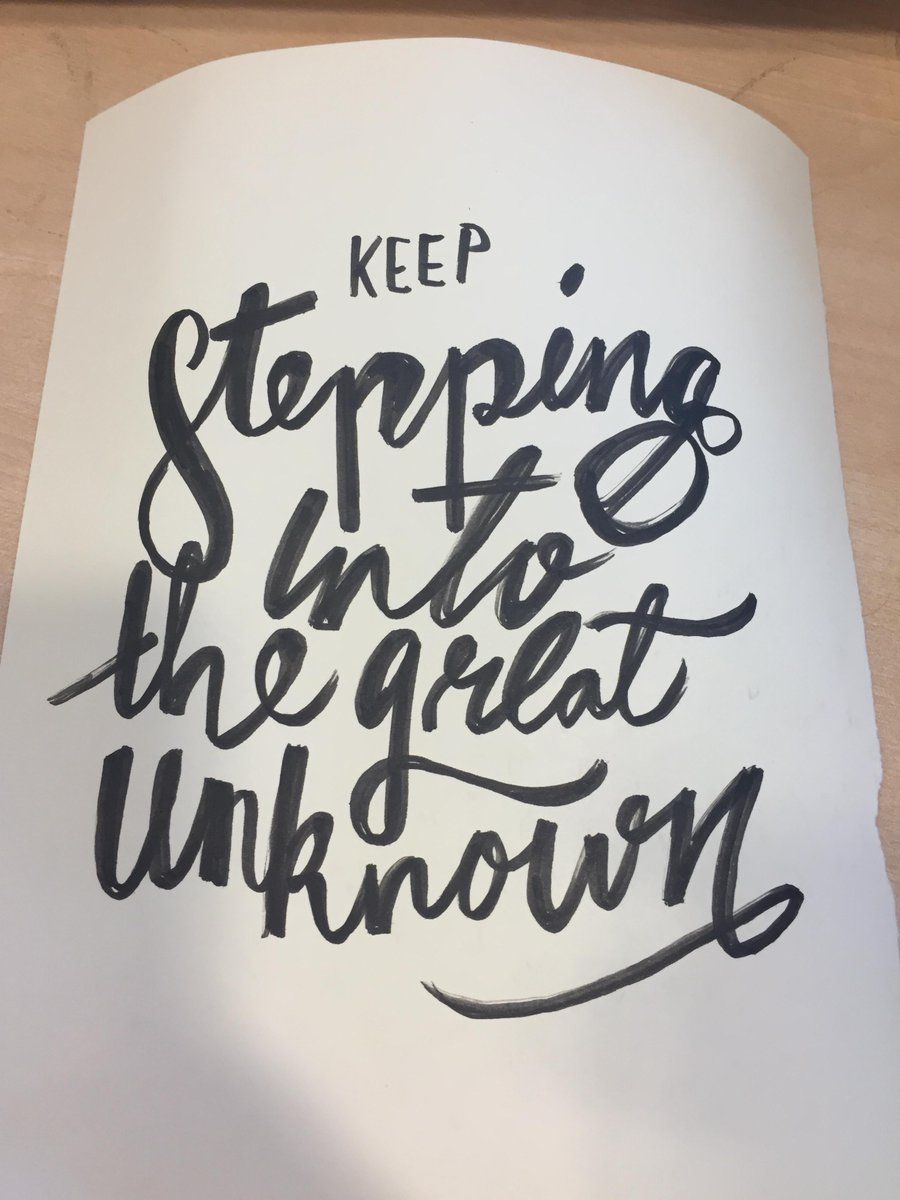 KEEP
Stepping
into
the great
Unknown